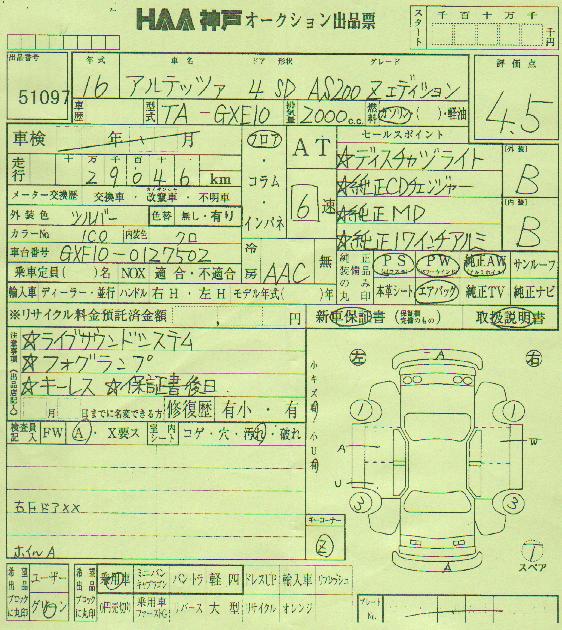 HAA神戸 オークション出品票
スタート 千 百 十 万 千 千円
出品番号 51097
年式 車名 ドア 形状 グレード
16 アルテッツァ 4 SD AS200 Zエディション
車歴 型式 TA-GXE10 排気量 2000c.c. 燃料 ガソリン( )・軽油
評価点 4.5
車検 年 月
走行 十 万 千 百 十
29046 km
メーター交換歴 交換車・改ざん車・不明車
外装色 シルバー 色替 無し・有り
カラーNo. 1C0 内装色 クロ
車台番号 GXE10-0127502
乗車定員( )名 NOX 適合・不適合
輸入車 ディーラー・並行 ハンドル 右H・左H モデル年式( )年
フロア・コラム・インパネ
AT 6速
冷房 AAC 無
セールスポイント
☆ディスチャヂライト
☆純正CDチェンジャー
☆純正MD
☆純正17インチアルミ
外装 B
内装 B
純正装備の丸印 PS PW 純正AW サンルーフ
本革シート エアバッグ 純正TV 純正ナビ
※リサイクル料金預託済金額 円
新車保証書 取扱説明書
注意事項(出品店記入)
☆ライブサウンドシステム
☆フォグランプ
☆キーレス ☆保証書後日
月 日までに名変できる方 修復歴 有小・有
検査員記入 FW A・X要ス 室内シート コゲ・穴・汚れ・破れ
右Fドア××
ホイルA
小キズ有 小U有
左 右
A
1 1
A W
U
3 3
A
1
スペア
キーコーナー Z
希望ブロックに丸印 ユーザー グリーン
希望ブロックに丸印 乗用車 ミニバン バントラ 軽四 ドレスUP 輸入車 リフレッシュ
0円売切り 乗用車 リバース 大型 リサイクル オレンジ
プレートNo.